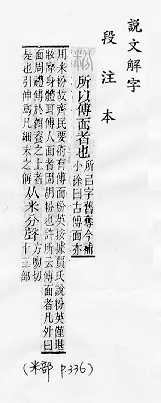 說文解字
段注本
粉 所以傅面者也 所㠯字舊奪今補
小徐曰古傅面亦
用米粉故齊民要術有傅面粉英按據賈氏說粉英僅堪
妝摩身體耳傅人面者固胡粉也許所云傅面者凡外曰
面周禮傅於餌餈之上者
是也引伸爲凡細末之偁
从米分聲
方吻切
十三部
(米部 p.336)